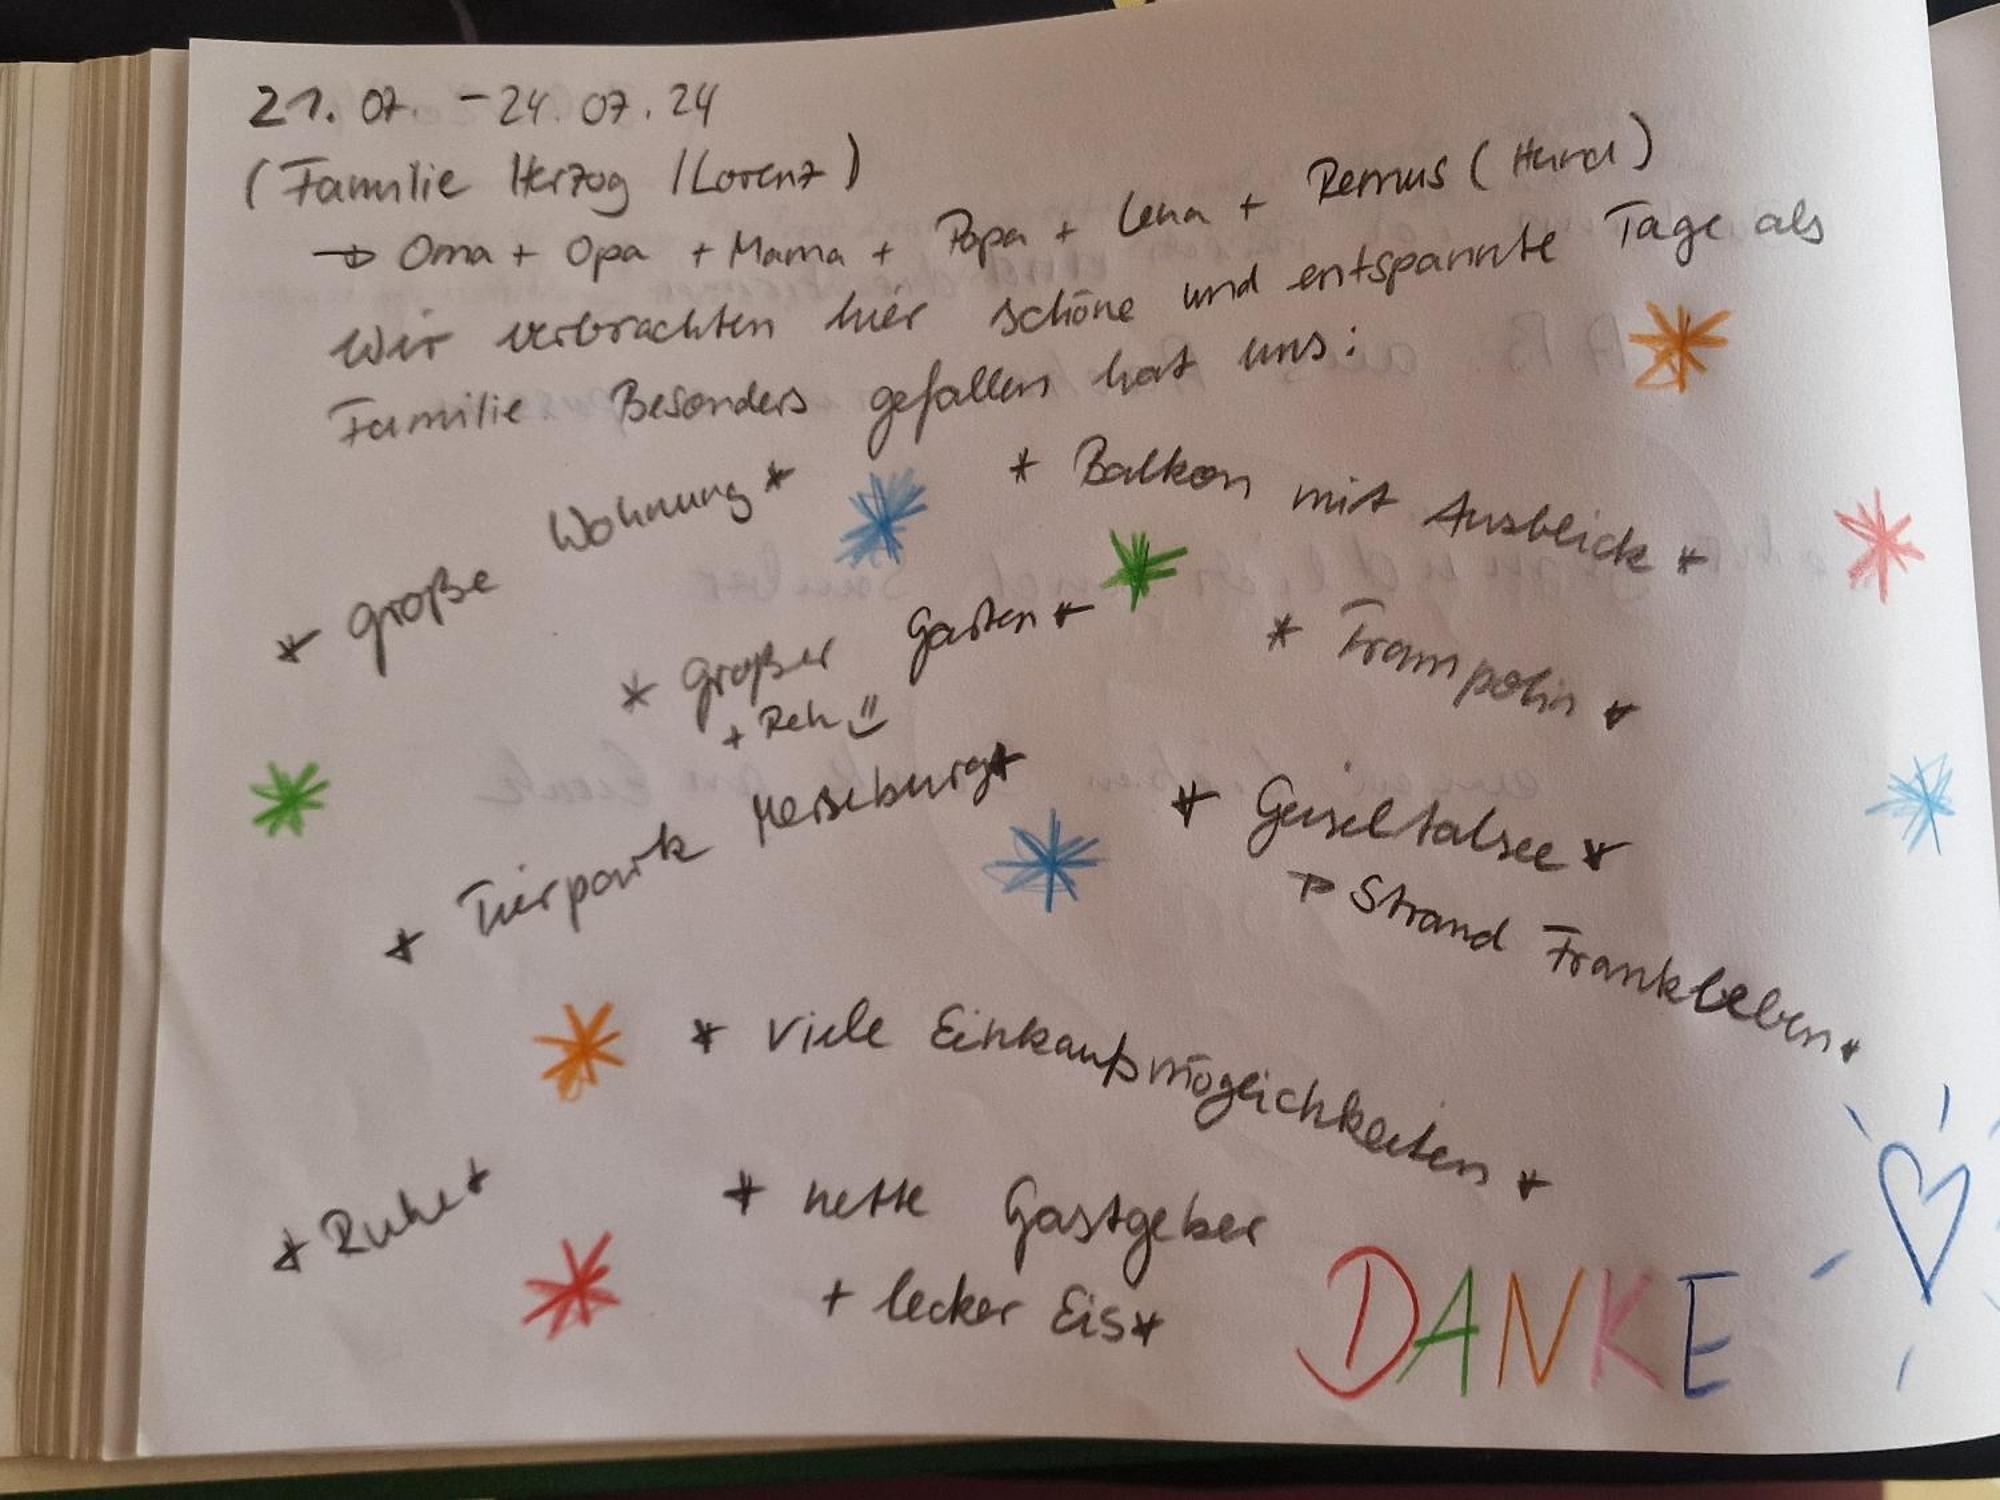 21.07. - 24.07.24
(Familie Herzog / Lorenz)
→ Oma + Opa + Mama + Papa + Lena + Remus (Hund)
Wir verbrachten hier schöne und entspannte Tage als
Familie Besonders gefallen hat uns:
* große Wohnung *
* Balkon mit Ausblick *
* großer Garten *
+ Reh
* Trampolin *
* Tierpark Merseburg *
* Geiseltalsee *
→ Strand Frankleben *
* viele Einkaufsmöglichkeiten *
* Ruhe *
* nette Gastgeber
+ lecker Eis *
DANKE